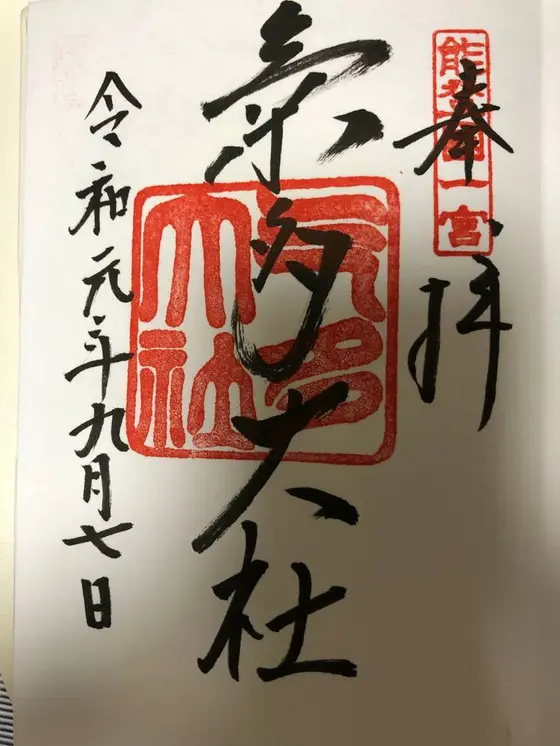 奉拝
能登國一宮
氣多大社
氣多大社
令和元年九月七日